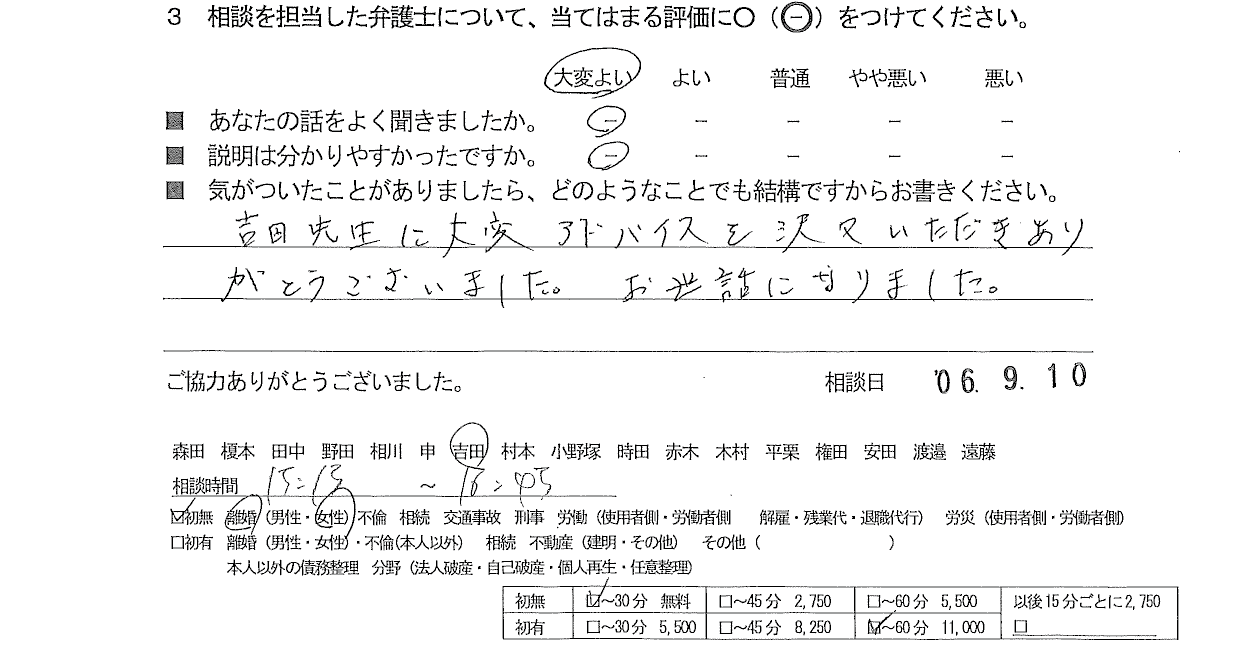 3 相談を担当した弁護士について、当てはまる評価に○（㊀）をつけてください。
大変よい よい 普通 やや悪い 悪い
■ あなたの話をよく聞きましたか。 － － － － －
■ 説明は分かりやすかったですか。 － － － － －
■ 気がついたことがありましたら、どのようなことでも結構ですからお書きください。
吉田先生に大変 アドバイスを沢又いただきあり
がとうございました。 お世話になりました。
ご協力ありがとうございました。 相談日 '06. 9. 10
森田 榎本 田中 野田 相川 申 吉田 村本 小野塚 時田 赤木 木村 平栗 権田 安田 渡邉 遠藤
相談時間 15:15 ～ 16:45
☑初無 離婚（男性・女性）不倫 相続 交通事故 刑事 労働（使用者側・労働者側 解雇・残業代・退職代行） 労災（使用者側・労働者側）
□初有 離婚（男性・女性）・不倫(本人以外) 相続 不動産（建明・その他） その他（ ）
本人以外の債務整理 分野（法人破産・自己破産・個人再生・任意整理）
初無 ☑～30分 無料 □～45分 2,750 □～60分 5,500 以後15分ごとに2,750
初有 □～30分 5,500 □～45分 8,250 ☑～60分 11,000 □